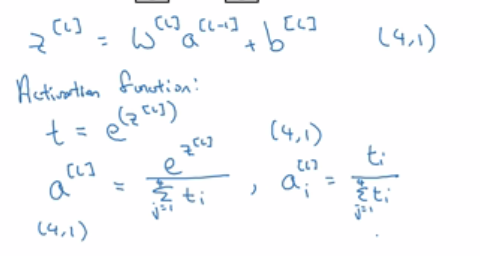 z^[L] = W^[L] a^[L-1] + b^[L] (4,1)
Activation function:
t = e^(z^[L]) (4,1)
a^[L] = e^z^[L] / ∑_{j=1}^4 t_i , a_i^[L] = t_i / ∑_{j=1}^4 t_i
(4,1)